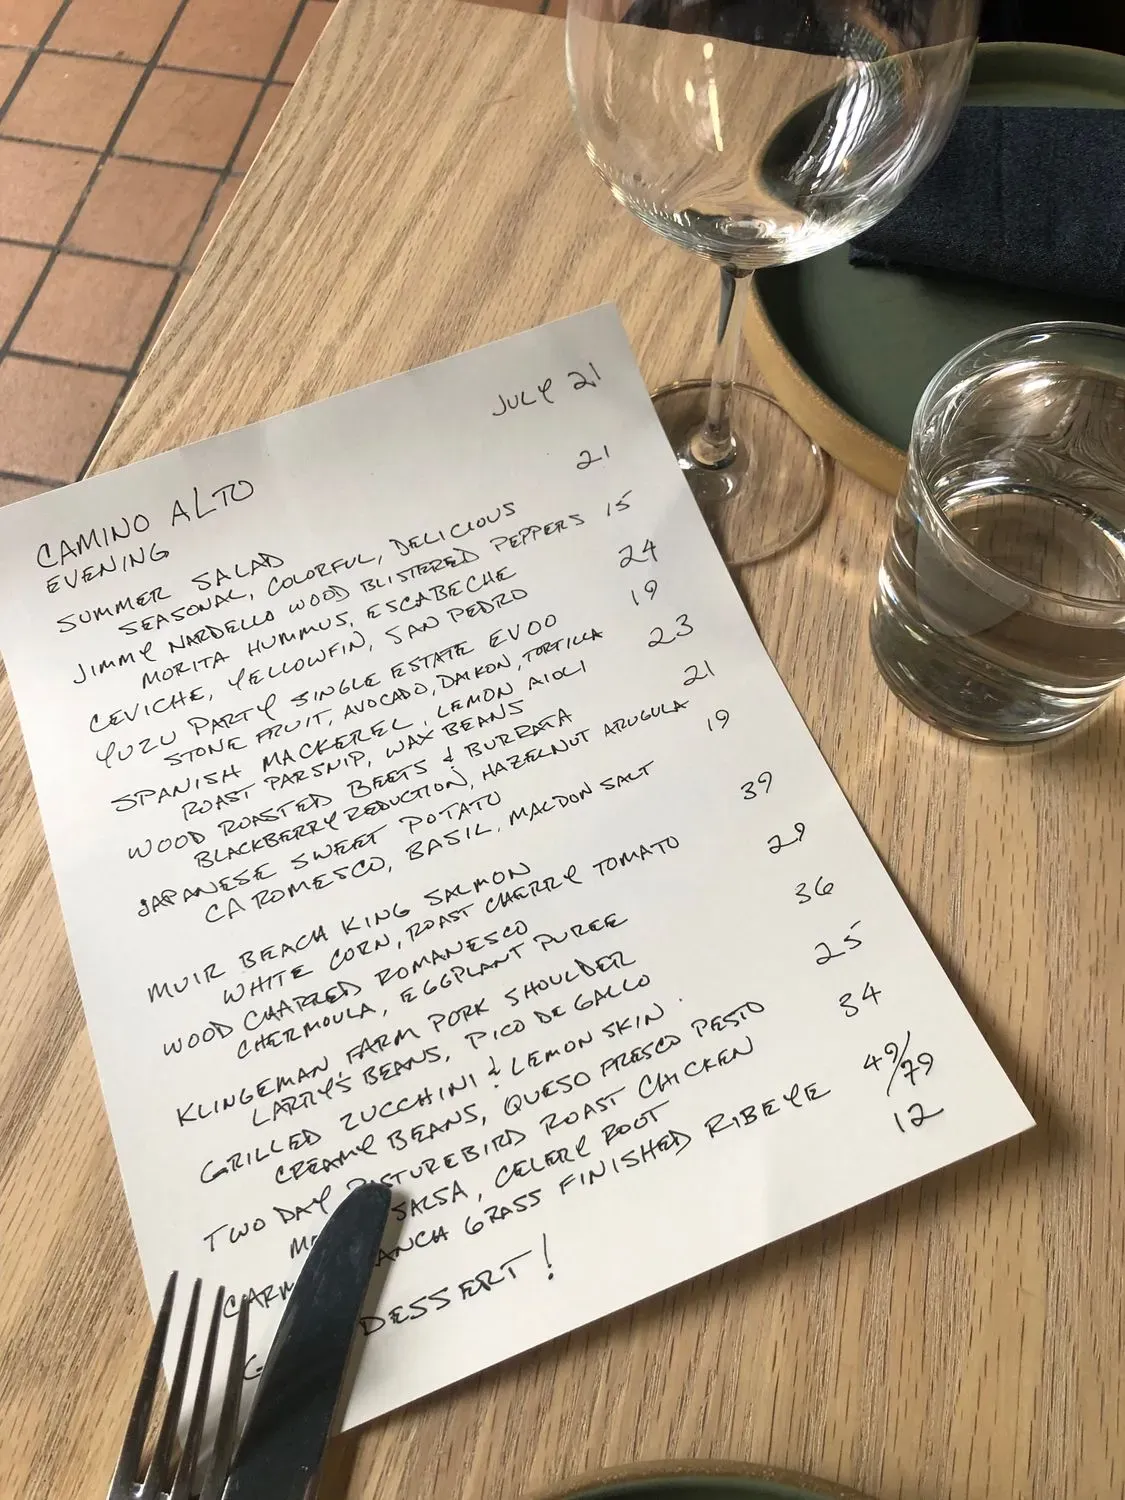 JULY 21
CAMINO ALTO
EVENING
SUMMER SALAD 21
SEASONAL, COLORFUL, DELICIOUS
JIMMY NARDELLO WOOD BLISTERED PEPPERS 15
MORITA HUMMUS, ESCABECHE
CEVICHE, YELLOWFIN, SAN PEDRO 24
YUZU PARTY SINGLE ESTATE EVOO 19
STONE FRUIT, AVOCADO, DAIKON, TORTILLA
SPANISH MACKEREL, LEMON AIOLI 23
ROAST PARSNIP, WAX BEANS
WOOD ROASTED BEETS & BURRATA 21
BLACKBERRY REDUCTION, HAZELNUT ARUGULA
JAPANESE SWEET POTATO 19
CA ROMESCO, BASIL, MALDON SALT
MUIR BEACH KING SALMON 39
WHITE CORN, ROAST CHERRY TOMATO
WOOD CHARRED ROMANESCO 29
CHERMOULA, EGGPLANT PUREE
KLINGEMAN FARM PORK SHOULDER 36
LARRY'S BEANS, PICO DE GALLO
GRILLED ZUCCHINI & LEMON SKIN 25
CREAMY BEANS, QUESO FRESCO PESTO
TWO DAY PASTUREBIRD ROAST CHICKEN 34
SALSA, CELERY ROOT
GRASS FINISHED RIBEYE 49/79
DESSERT! 12